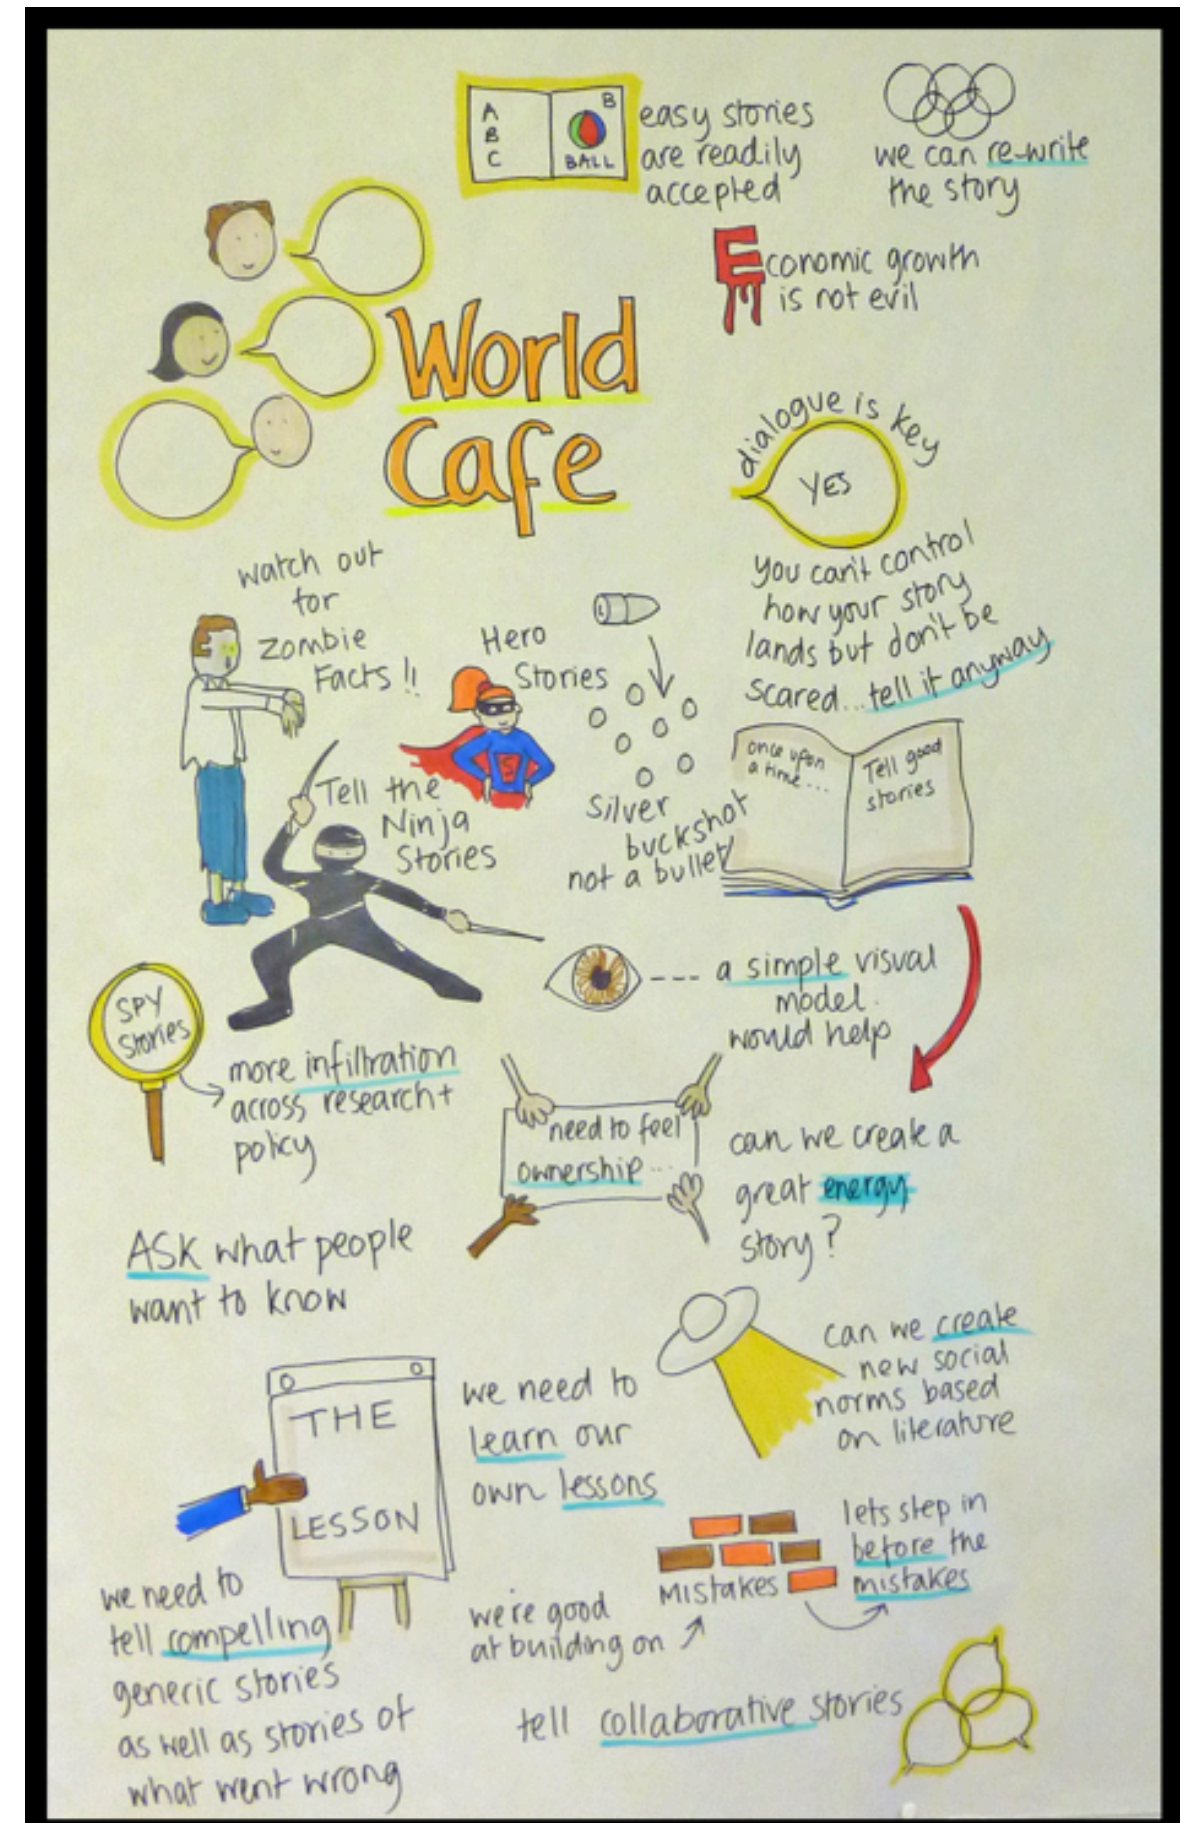 A
B
C
B
BALL
easy stories
are readily
accepted
we can re-write
the story
Economic growth
is not evil
World
Cafe
dialogue is key
YES
you can't control
how your story
lands but don't be
scared... tell it anyway
watch out
for
zombie
Facts!!
Hero
Stories
S
Tell the
Ninja
Stories
Silver
buckshot
not a bullet
once upon
a time...
Tell good
stories
SPY
Stories
more infiltration
across research +
policy
a simple visual
model.
would help
need to feel
ownership...
can we create a
great energy
story?
ASK what people
want to know
can we create
new social
norms based
on literature
THE
LESSON
we need to
learn our
own lessons
we need to
tell compelling
generic stories
as well as stories of
what went wrong
we're good
at building on
MISTAKES
lets step in
before the
mistakes
tell collaborative stories